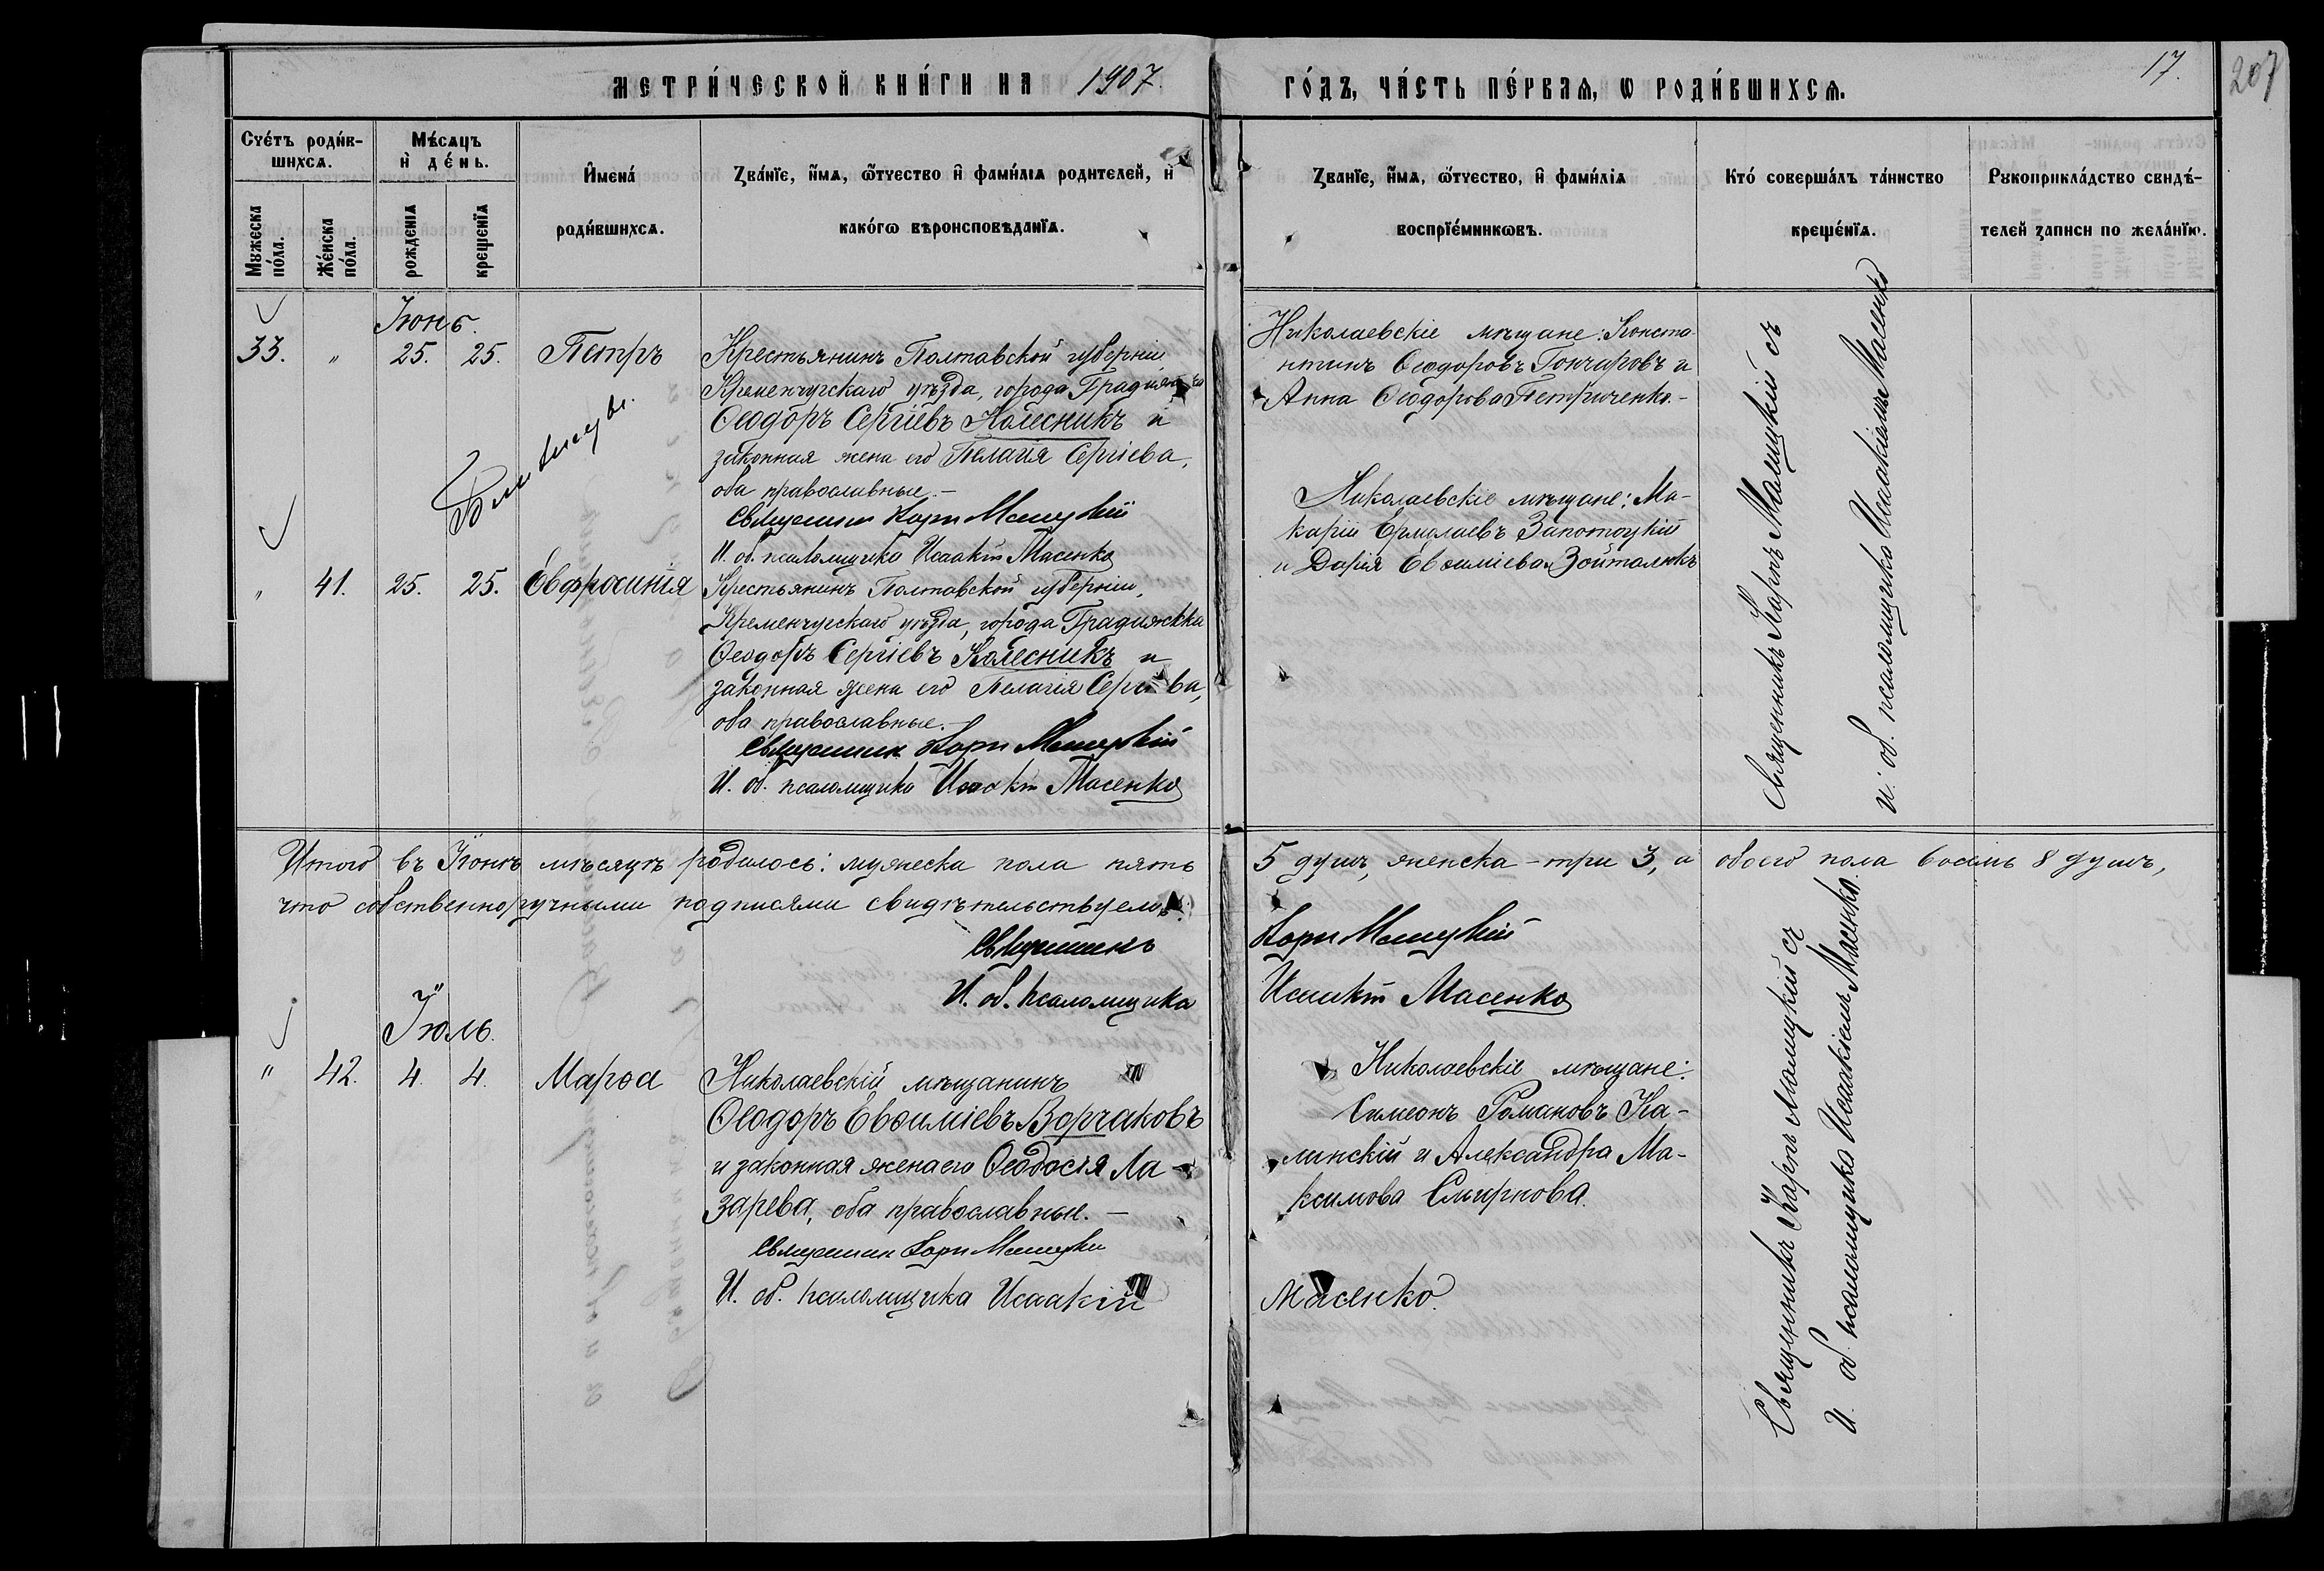 МЕТРИ́ЧЕСКОЙ КНИ́ГИ НА 1907.
ГО́ДЪ, ЧА́СТЬ ПЕ́РВАѦ, Ѡ РОДИ́ВШИХСѦ.
17.
207
Счетъ роди́в-
шихсѧ.
Мꙋжеска
по́ла.
Же́нска
по́ла.
Мѣ́сѧцъ
и҆ де́нь.
рожденїѧ
крещенїѧ
И҆мена́
роди́вшихсѧ.
Зва́нїе, и҆́мѧ, ѻ҆́тчество и҆ фами́лїѧ родителей, и҆
како́гѡ вѣроисповѣданїѧ.
Званїе, и҆́мѧ, ѻ҆́тчество, и҆ фами́лїѧ
воспрїе́мникѡвъ.
Кто́ соверша́лъ та́инство
креще́нїѧ.
Рꙋкоприкла́дство свидѣ́-
телей записи по жела́нїю.
Іюнь.
33. " 25. 25. Петръ
Крестьянинъ Полтавской губерніи,
Кременчугскаго уѣзда, города Градижска
Ѳеодоръ Сергіевъ Колесникъ и
законная жена его Пелагія Сергіева,
оба православные.-
Священник Карп Малицкій
И. об. псаломщика Исаакій Масенко
Николаевскіе мѣщане: Конста-
нтинъ Ѳеодоровъ Гончаровъ и
Анна Ѳеодорова Петриченко.-
Близнецы.
" 41. 25. 25. Евфросинія
Крестьянинъ Полтавской губерніи,
Кременчугскаго уѣзда, города Градижска
Ѳеодоръ Сергіевъ Колесникъ и
законная жена его Пелагія Сергіева,
оба православные.-
Священник Карп Малицкій
И. об. псаломщика Исаакій Масенко
Николаевскіе мѣщане: Ма-
карій Ермолаевъ Запотоцкій
и Дарія Евѳиміева
Священникъ Карпъ Малицкій съ
и. об. псаломщика Исаакіемъ Масенко
Итого въ Іюнѣ мѣсяцѣ родилось: мужеска пола пять 5 душъ, женска - три 3, а обоего пола восемь 8 душъ,
что собственноручными подписями свидѣтельствуемъ:
Священникъ Карп Малицкій
И. об. псаломщика Исаакій Масенко
Іюль.
" 42. 4. 4. Марѳа
Николаевскій мѣщанинъ
Ѳеодоръ Евѳиміевъ Ворчаковъ
и законная жена его Ѳеодосія Ла-
зарева, оба православные.-
Священник Карп Малицкій
И. об. псаломщика Исаакій Масенко.
Николаевскіе мѣщане:
Симеонъ Романовъ Ка-
линскій и Александра Ма-
ксимова Смирнова.
Священникъ Карпъ Малицкій съ
И. об. псаломщика Исаакіемъ Масенко.